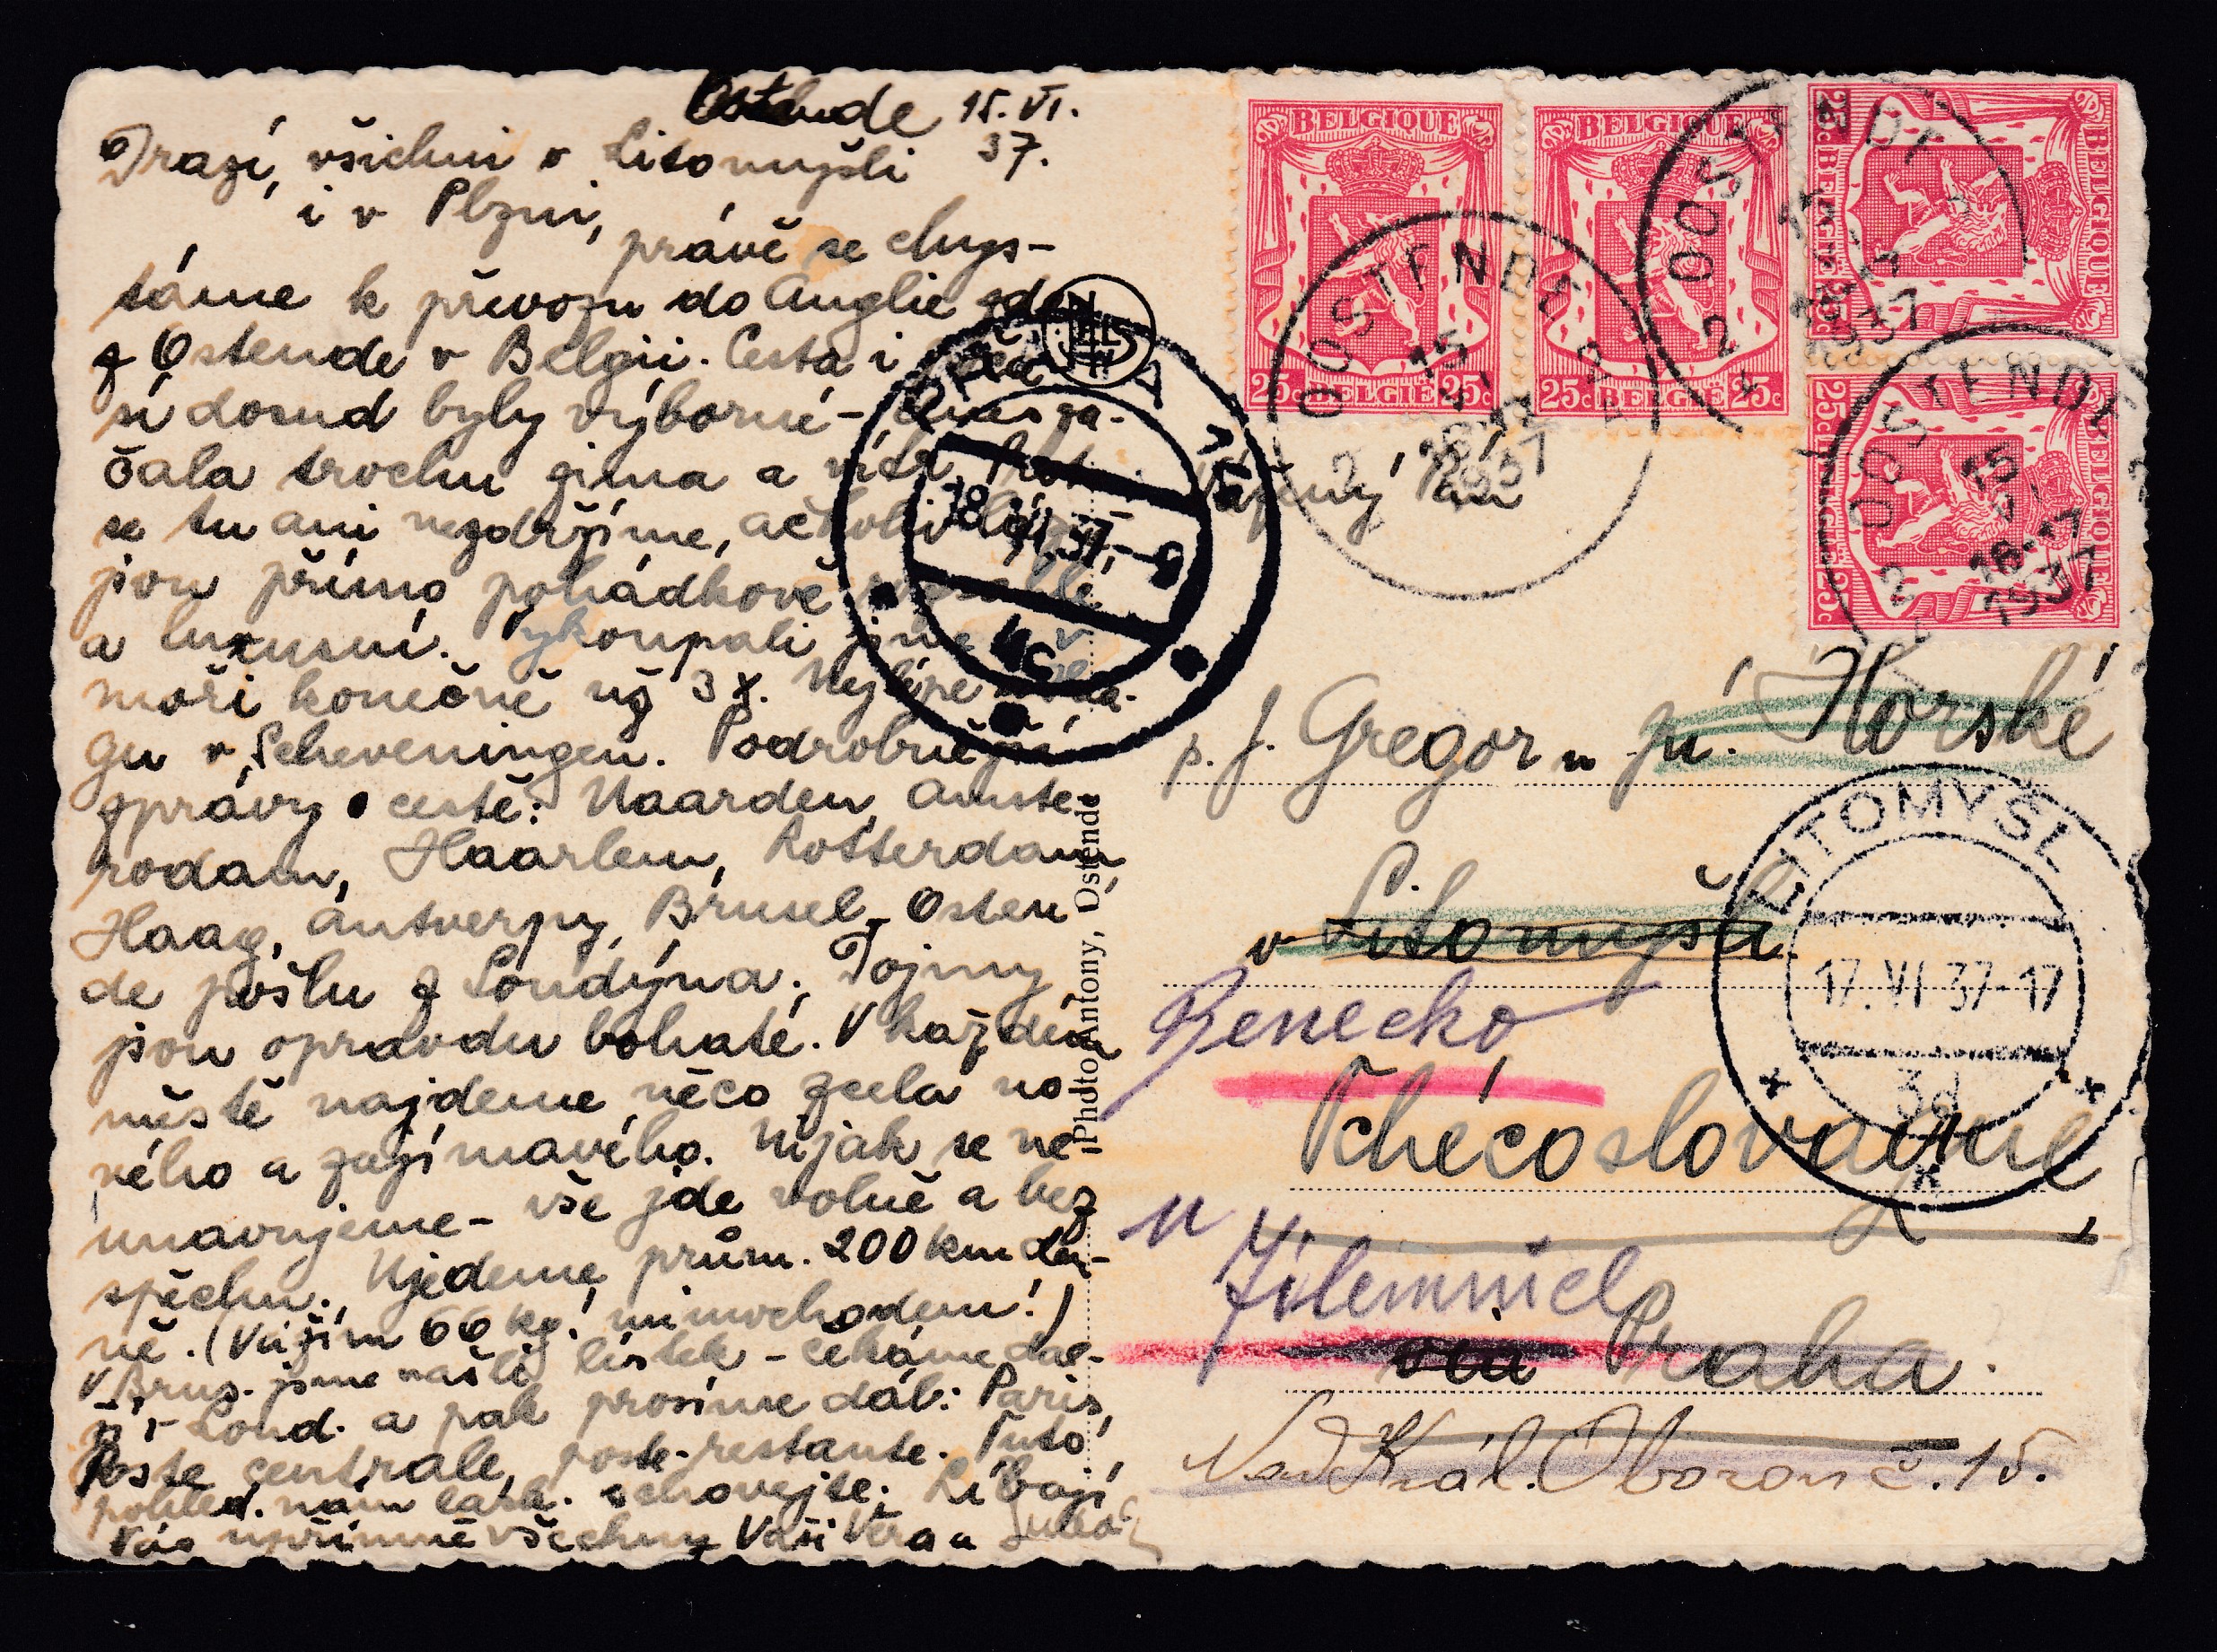 Ostende 15. VI.
37.
Drazí, všichni v Litomyšli
i v Plzni,
právě se chys-
táme k převozu do Anglie zde
z Ostende v Belgii. Cesta i
sí dosud byly výborné - dnes za-
čala trochu zima a vítr.
se tu ani nezdržíme, ačkoliv
jsou přímo pohádkově
a luxusní. Vykoupali jsme v
moři konečně už 3x. Nejlépe
gu v Scheveningen. Podrobnější
zprávy o cestě: Naarden, Amste-
rodam, Haarlem, Rotterdam,
Haag, Antverpy, Brusel, Osten
de pošlu z Londýna. Dojmy
jsou opravdu bohaté. V každém
městě najdeme něco zcela no
vého a zajímavého. Nijak se ne
unavujeme - vše jde volně a bez
spěchu. Ujedeme prům. 200 km den-
ně. (Vážím 66 kg! mimochodem!)
V Brus. jsme našli lístek - čekáme dal-
ší v Lond. a pak prosíme dál: Paris,
Poste centrale, poste-restante. Tuto
pohled. nám lask. schovejte. Líbají
Vás upřímně všechny Vaši Věra a
BELGIQUE
25c BELGIË 25c
BELGIQUE
25c BELGIË 25c
BELGIQUE
25c BELGIË 25c
BELGIQUE
25c BELGIË 25c
OOSTENDE
2 2
15
VI
1937
OOSTENDE
2
1937
OOSTENDE
2 2
15
VI
16-17
1937
NELS
PRAHA
18. VI. 37.-9
4c
Vážený Pán
p. J. Gregor u pí. Horské
v Litomyšli
Benecko
Tchécoslovaquie
u Jilemnice
via Praha.
Nad Král. Oborou č. 15.
LITOMYŠL
17. VI 37-17
3d
Photo Antony, Ostende